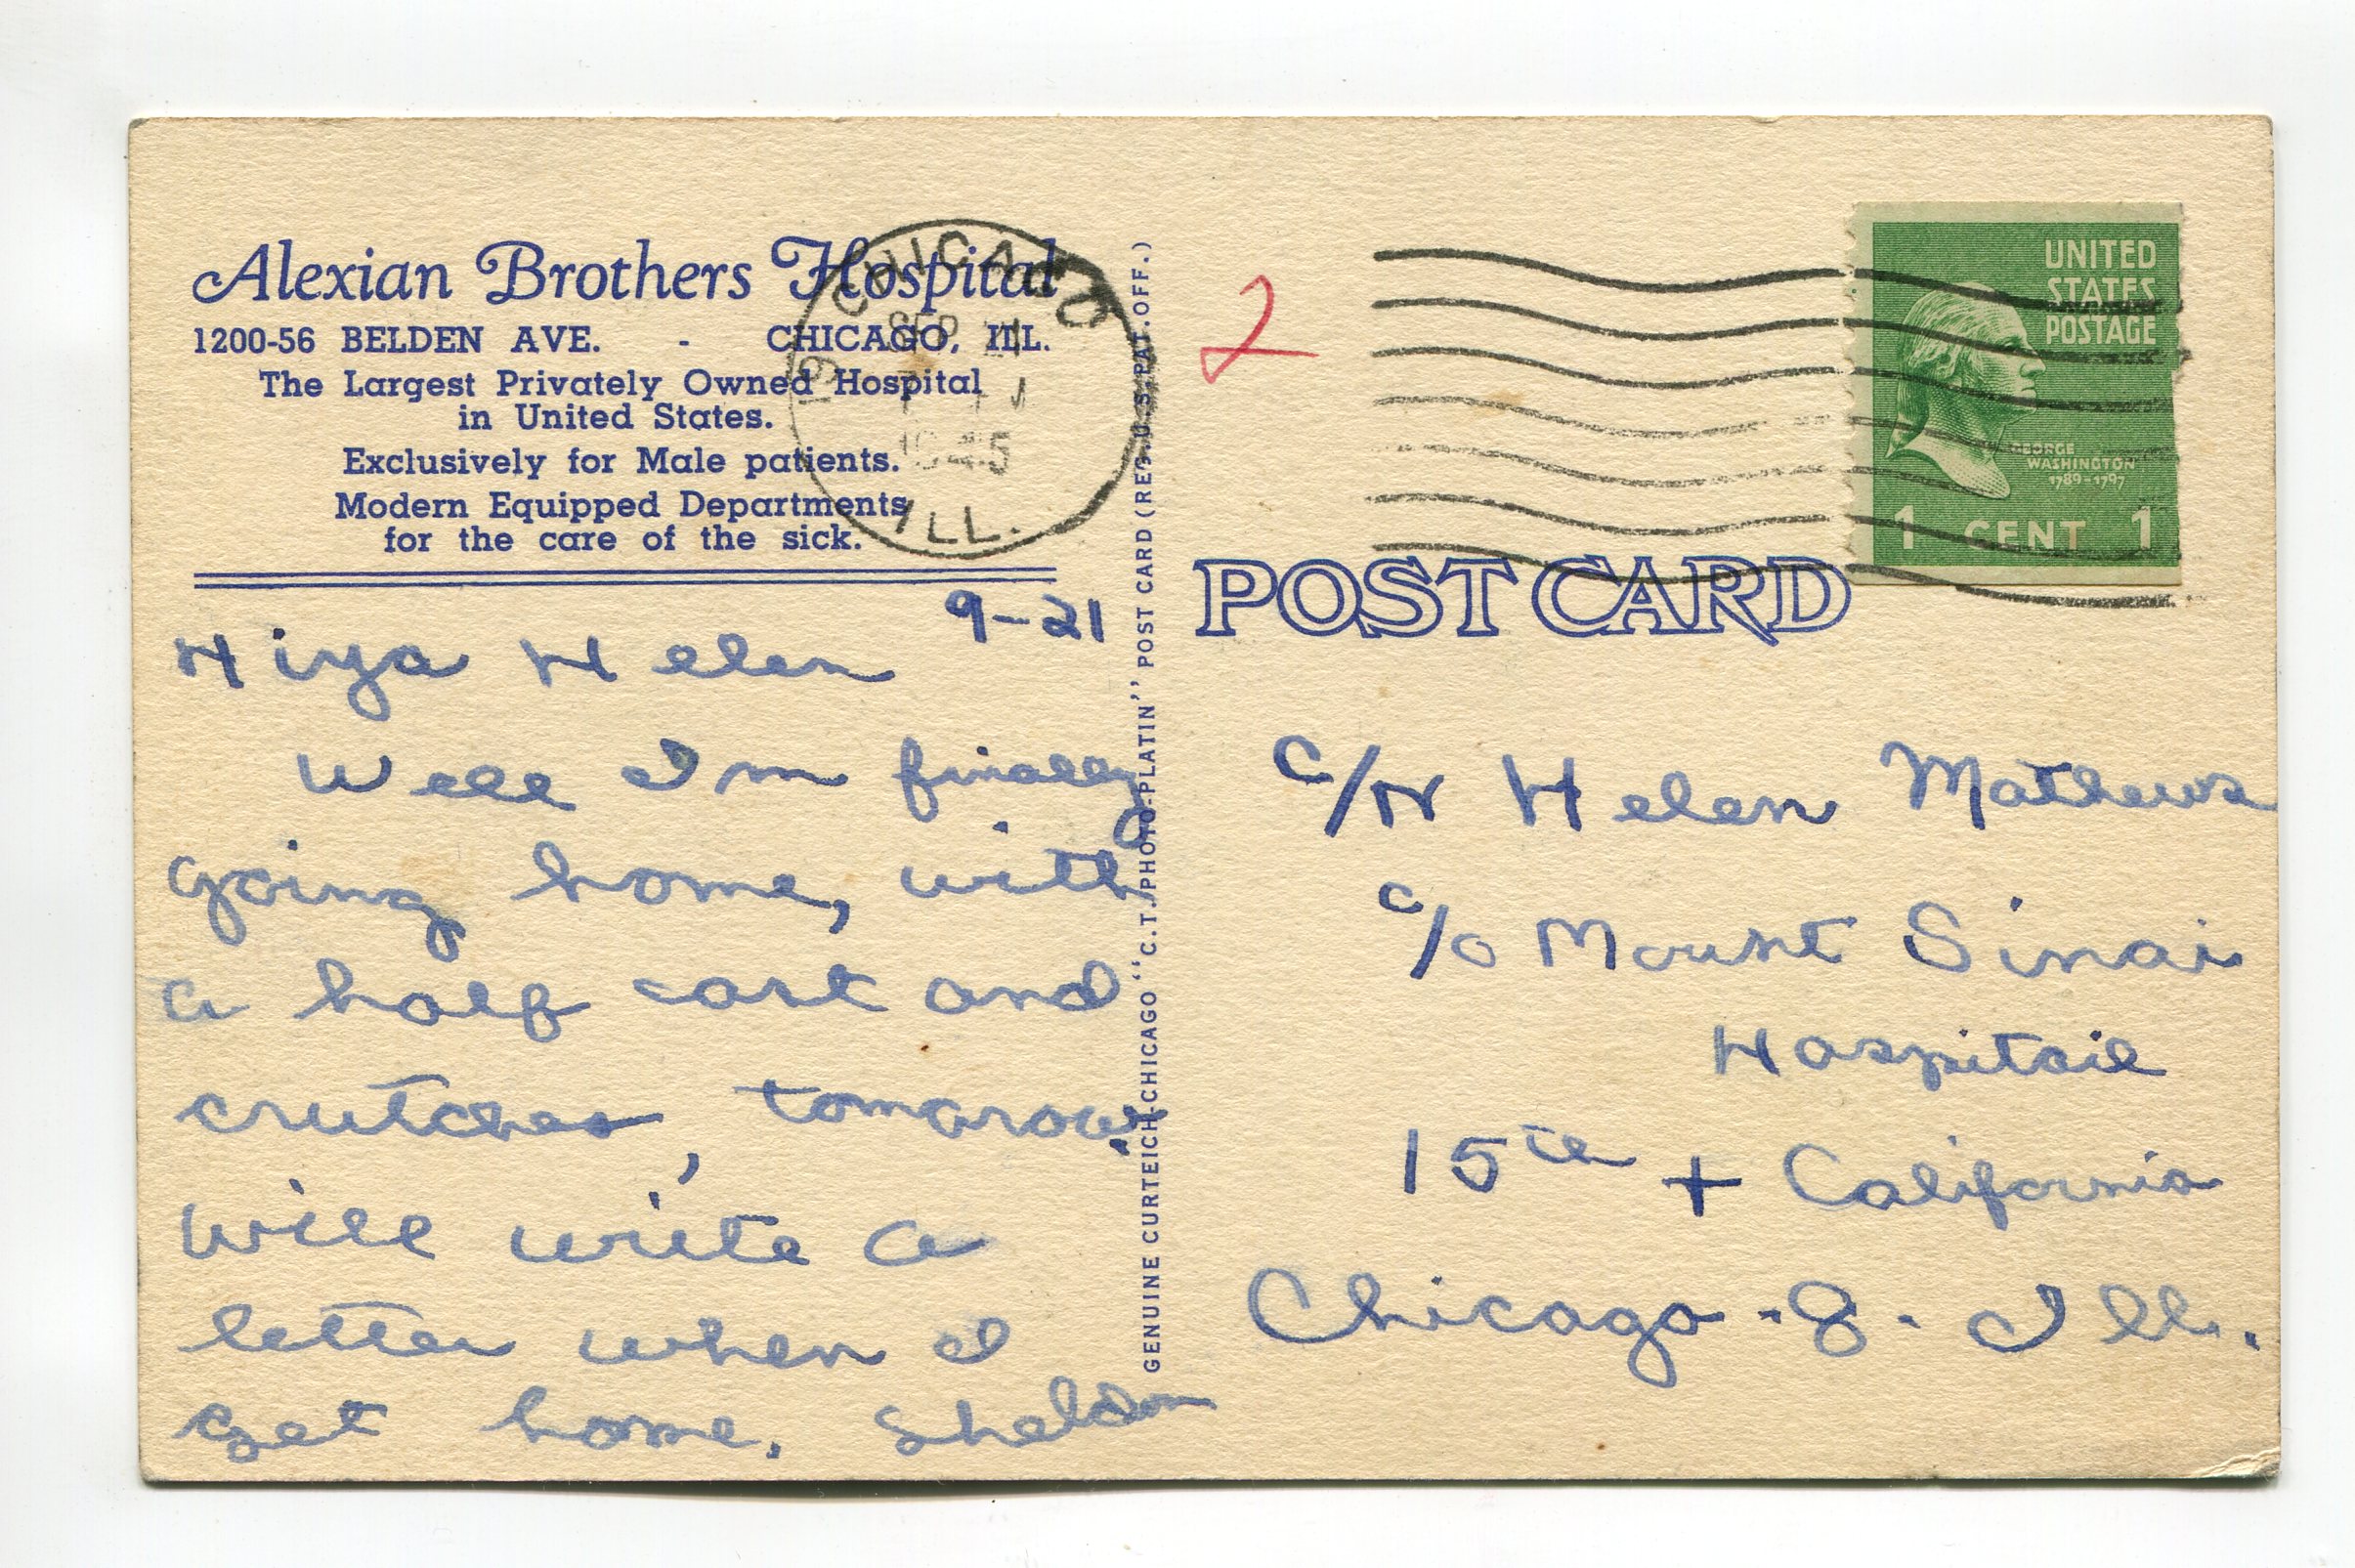 Alexian Brothers Hospital
1200-56 BELDEN AVE. - CHICAGO, ILL.
The Largest Privately Owned Hospital
in United States.
Exclusively for Male patients.
Modern Equipped Departments
for the care of the sick.
CHICAGO
19
SEP 21
1945
ILL.
9-21
Hiya Helen
Well I'm finally
going home, with
a half cast and
crutches, tomarow.
Will write a
letter when I
get home. Sheldon
GENUINE CURTEICH-CHICAGO "C.T. PHOTO-PLATIN" POST CARD (REG. U.S. PAT. OFF.)
2
UNITED
STATES
POSTAGE
GEORGE
WASHINGTON
1789-1797
1 CENT 1
POST CARD
C/N Helen Mathews
c/o Mount Sinai
Hospitail
15th + California
Chicago - 8 - Ill.